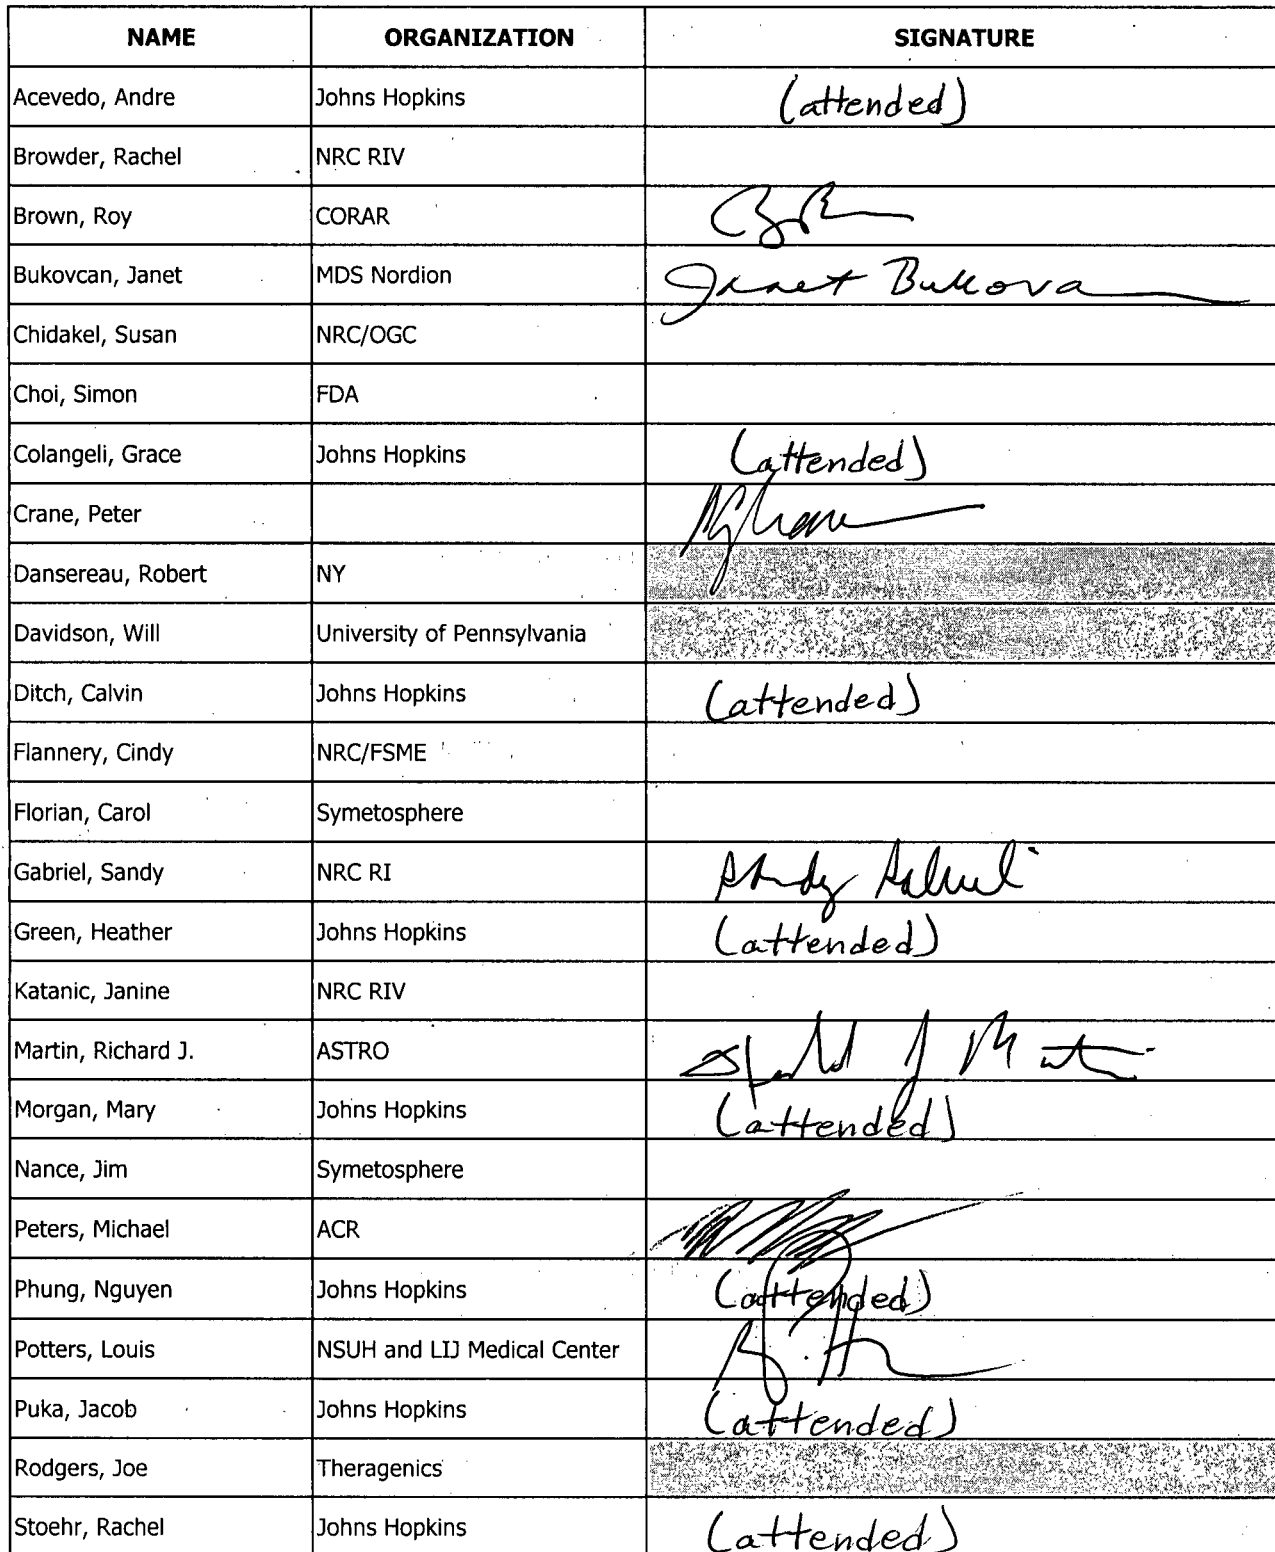 NAME ORGANIZATION SIGNATURE
Acevedo, Andre Johns Hopkins (attended)
Browder, Rachel NRC RIV
Brown, Roy CORAR
Bukovcan, Janet MDS Nordion Janet Bukova
Chidakel, Susan NRC/OGC
Choi, Simon FDA
Colangeli, Grace Johns Hopkins (attended)
Crane, Peter
Dansereau, Robert NY
Davidson, Will University of Pennsylvania
Ditch, Calvin Johns Hopkins (attended)
Flannery, Cindy NRC/FSME
Florian, Carol Symetosphere
Gabriel, Sandy NRC RI Sandy Gabriel
Green, Heather Johns Hopkins (attended)
Katanic, Janine NRC RIV
Martin, Richard J. ASTRO
Morgan, Mary Johns Hopkins (attended)
Nance, Jim Symetosphere
Peters, Michael ACR
Phung, Nguyen Johns Hopkins (attended)
Potters, Louis NSUH and LIJ Medical Center
Puka, Jacob Johns Hopkins (attended)
Rodgers, Joe Theragenics
Stoehr, Rachel Johns Hopkins (attended)